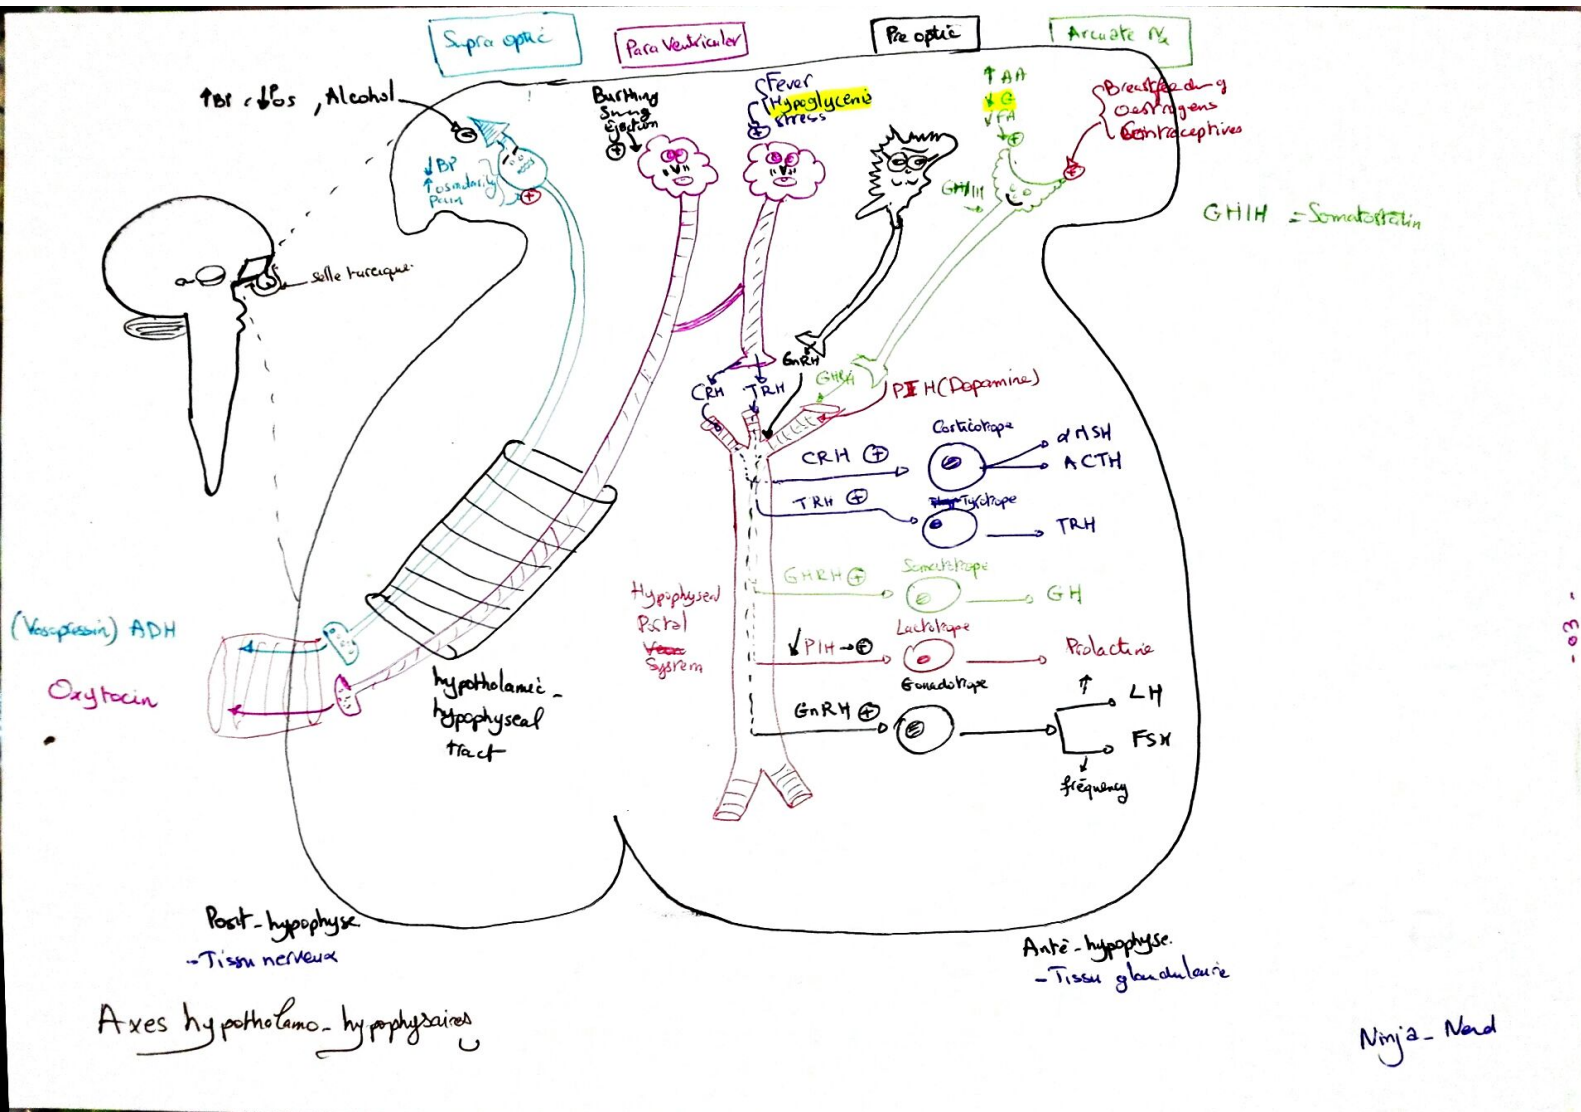 Supra optic
Para Ventriculer
Pre optic
Arcuate Nx
↑BP, ↓Pos, Alcohol
⊖
↓BP
↑osmolarity
pain
⊕
Burthing
Suing
Ejection
⊕
Fever
Hypoglycemie
stress
⊕
↑ AA
↓ G
↓ FA
⊕
Breastfeeding
Oestrogens
Contraceptives
⊕
GHIH
GHIH = Somatostatin
selle turcique
CRH
TRH
GnRH
GHRH
PIH (Dopamine)
CRH ⊕
Corticotrope
αMSH
ACTH
TRH ⊕
Tyrotrope
TRH
GHRH ⊕
Somatotrope
GH
↓PIH → ⊕
Lactotrope
Prolactine
GnRH ⊕
Gonadotrope
↑
LH
FSH
frequency
Hypophyseal
Portal
System
(Vasopressin) ADH
Oxytocin
hypotholamic-
hypophyseal
tract
- 03 -
Post-hypophyse.
- Tissu nerveux
Antè-hypophyse.
- Tissu glandulaire
Axes hypotholamo-hypophysaires
Ninja-Nerd